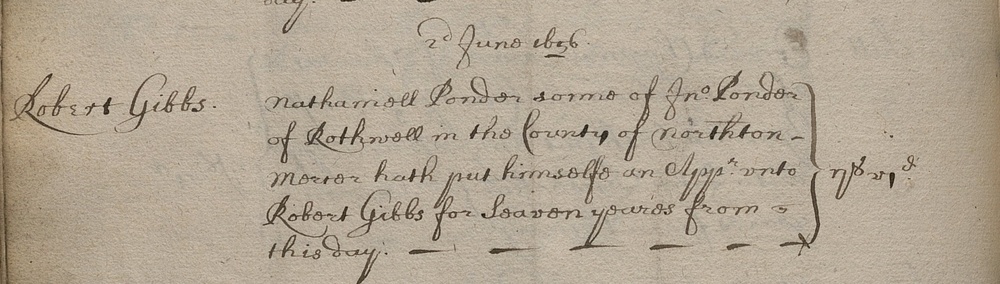 day.
2d June 1656.
Robert Gibbs.
Nathaniell Ponder sonne of Jno. Ponder
of Rothwell in the County of Northton-
Mercer hath put himselfe an Appr. vnto
Robert Gibbs for Seaven yeares from
this day.
ijs vjd.